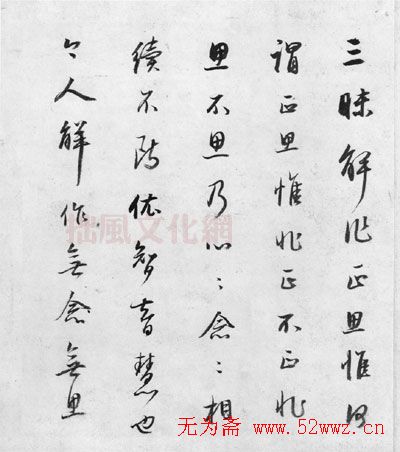 三昧解作正思惟何
謂正思惟非正不正非
思不思乃心〻念〻相
續不依智慧也
今人解作無念無思
拙風文化網
无为斋 www.52wwz.cn